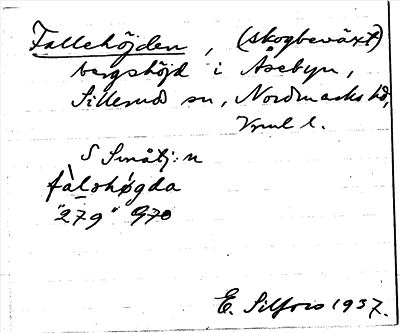 Fallehöjden, (skogbeväxt)
bergshöjd i Åsebyn,
Sillerud sn, Nordmarks hd,
Vrml l.
S Småtj:n
fàlshøgda
"279" G70
E. Silfors 1937.